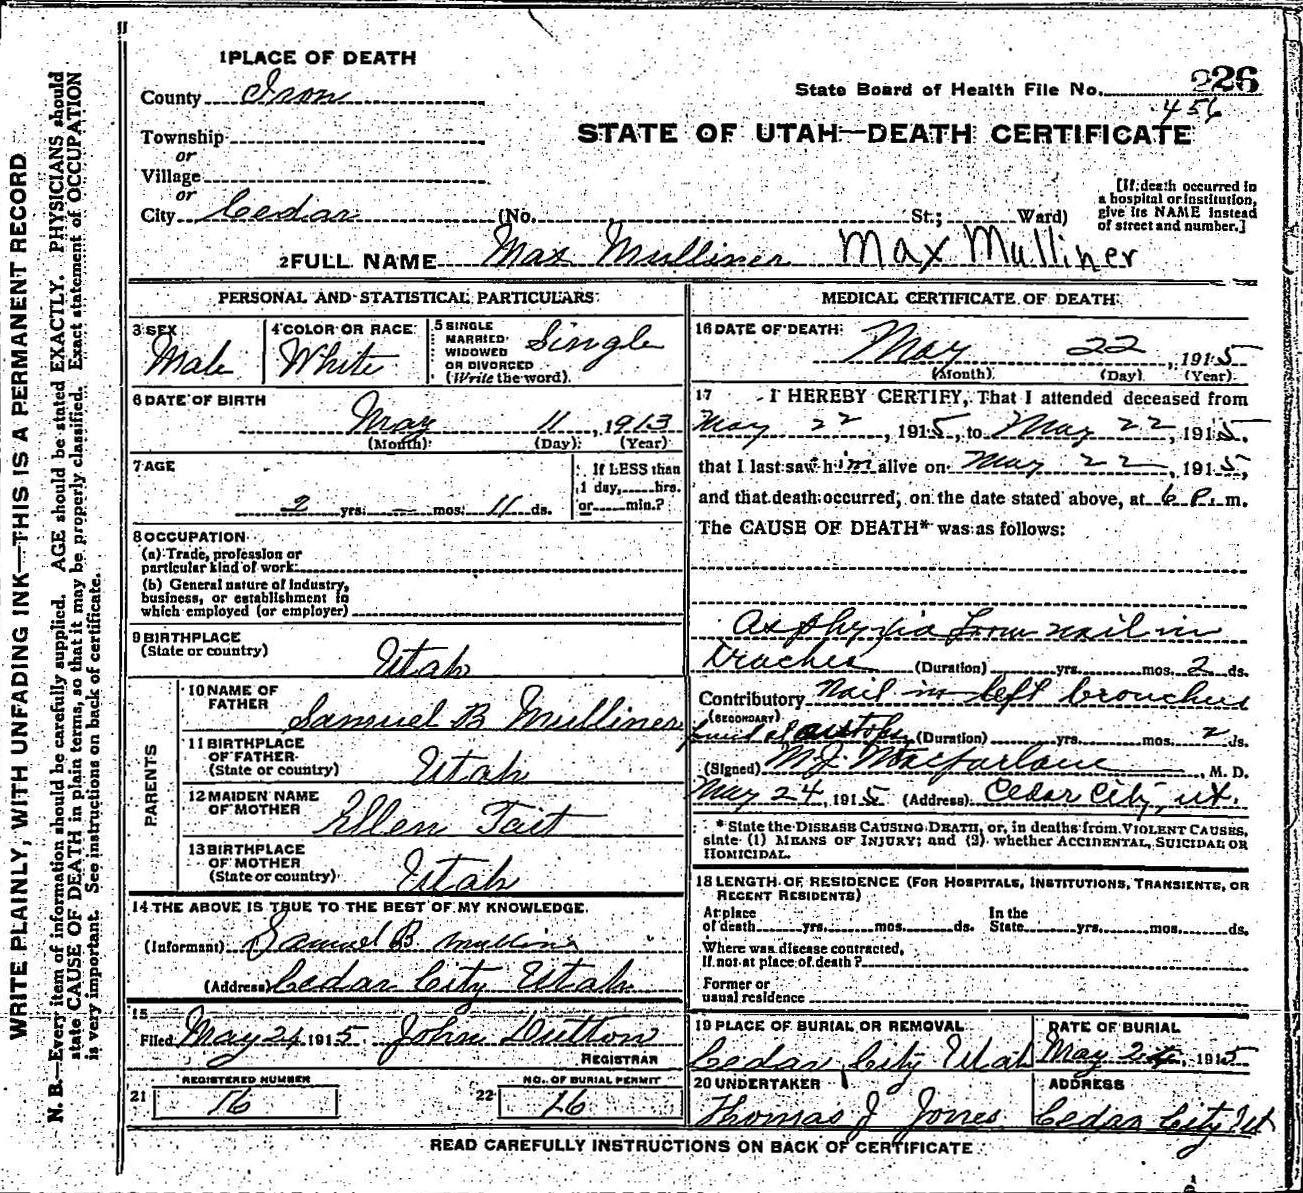 1 PLACE OF DEATH
County Iron
State Board of Health File No. 226
456
Township
or
Village
or
City Cedar (No. St.; Ward)
STATE OF UTAH—DEATH CERTIFICATE
[If death occurred in
a hospital or institution,
give its NAME instead
of street and number.]
2 FULL NAME Max Mulliner Max Mulliner
PERSONAL AND STATISTICAL PARTICULARS
3 SEX
Male
4 COLOR OR RACE
White
5 SINGLE
MARRIED
WIDOWED
OR DIVORCED
(Write the word).
Single
6 DATE OF BIRTH
May 11, 1913
(Month) (Day) (Year)
7 AGE
2 yrs. — mos. 11 ds.
If LESS than
1 day, hrs.
or min.?
8 OCCUPATION
(a) Trade, profession or
particular kind of work
(b) General nature of industry,
business, or establishment in
which employed (or employer)
9 BIRTHPLACE
(State or country)
Utah
PARENTS
10 NAME OF
FATHER
Samuel B Mulliner
11 BIRTHPLACE
OF FATHER
(State or country)
Utah
12 MAIDEN NAME
OF MOTHER
Ellen Tait
13 BIRTHPLACE
OF MOTHER
(State or country)
Utah
14 THE ABOVE IS TRUE TO THE BEST OF MY KNOWLEDGE.
(Informant) Samuel B Mulliner
(Address) Cedar City Utah
15
Filed May 24 1915 John Dutton
REGISTRAR
21 REGISTERED NUMBER
16
22 NO. OF BURIAL PERMIT
16
MEDICAL CERTIFICATE OF DEATH
16 DATE OF DEATH
May 22, 1915
(Month) (Day) (Year)
17 I HEREBY CERTIFY, That I attended deceased from
May 22, 1915, to May 22, 1915,
that I last saw him alive on May 22, 1915,
and that death occurred, on the date stated above, at 6 P. m.
The CAUSE OF DEATH* was as follows:
Asphyxia from nail in
trachea (Duration) yrs. mos. 2 ds.
Contributory Nail in left bronchus
(SECONDARY)
found at autopsy (Duration) yrs. mos. 2 ds.
(Signed) M.J. Macfarlane, M. D.
May 24, 1915 (Address) Cedar City, Ut.
* State the DISEASE CAUSING DEATH, or, in deaths from VIOLENT CAUSES,
state (1) MEANS OF INJURY; and (2) whether ACCIDENTAL, SUICIDAL OR
HOMICIDAL.
18 LENGTH OF RESIDENCE (FOR HOSPITALS, INSTITUTIONS, TRANSIENTS, OR
RECENT RESIDENTS)
At place
of death yrs. mos. ds.
In the
State yrs. mos. ds.
Where was disease contracted,
If not at place of death?
Former or
usual residence
19 PLACE OF BURIAL OR REMOVAL
Cedar City Utah
DATE OF BURIAL
May 24, 1915
20 UNDERTAKER
Thomas J Jones
ADDRESS
Cedar City Ut
READ CAREFULLY INSTRUCTIONS ON BACK OF CERTIFICATE
WRITE PLAINLY, WITH UNFADING INK—THIS IS A PERMANENT RECORD
N. B.—Every item of information should be carefully supplied. AGE should be stated EXACTLY. PHYSICIANS should
state CAUSE OF DEATH in plain terms, so that it may be properly classified. Exact statement of OCCUPATION
is very important. See instructions on back of certificate.